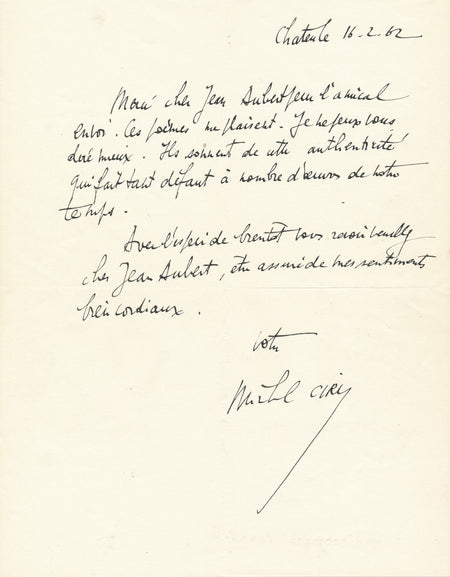 16-2-62
Merci cher Jean Aubert pour l'amical
envoi. Ces poèmes me plaisent. Je ne peux vous
dire mieux. Ils sonnent de cette authenticité
qui fait tant défaut à nombre d'œuvres de notre
temps.
Avec l'espoir de bientôt vous revoir veuillez
cher Jean Aubert, être assuré de mes sentiments
bien cordiaux.
Votre
Michel CIRY